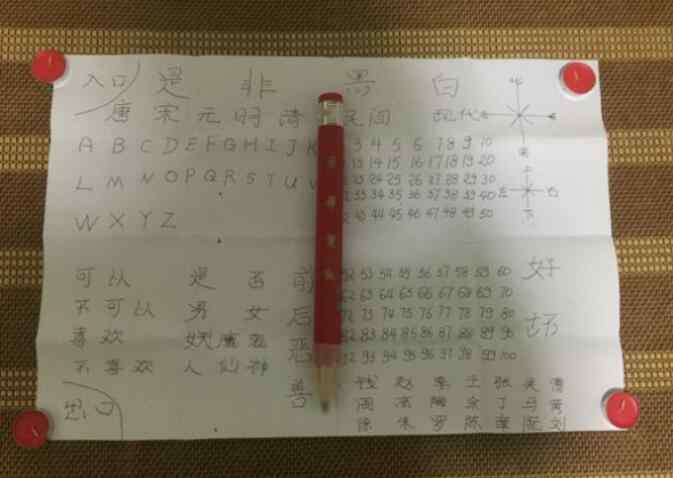 入口 是 非 黑 白 北
唐 宋 元 明 清 民间 现代
A B C D E F G H I J K 3 4 5 6 7 8 9 10
L M N O P Q R S T U V 13 14 15 16 17 18 19 20 南
23 24 25 26 27 28 29 30 上
W X Y Z 33 34 35 36 37 38 39 40 左 右
43 44 45 46 47 48 49 50 下
可以 是 否 前 52 53 54 55 56 57 58 59 60 好
不可以 男 女 后 62 63 64 65 66 67 68 69 70
72 73 74 75 76 77 78 79 80 坏
喜欢 妖魔鬼 恶 82 83 84 85 86 87 88 89 90
不喜欢 人仙神 92 93 94 95 96 97 98 99 100
善 钱 赵 李 王 张
出口 周 陶 丁 马 黄
徐 朱 罗 陈 刘